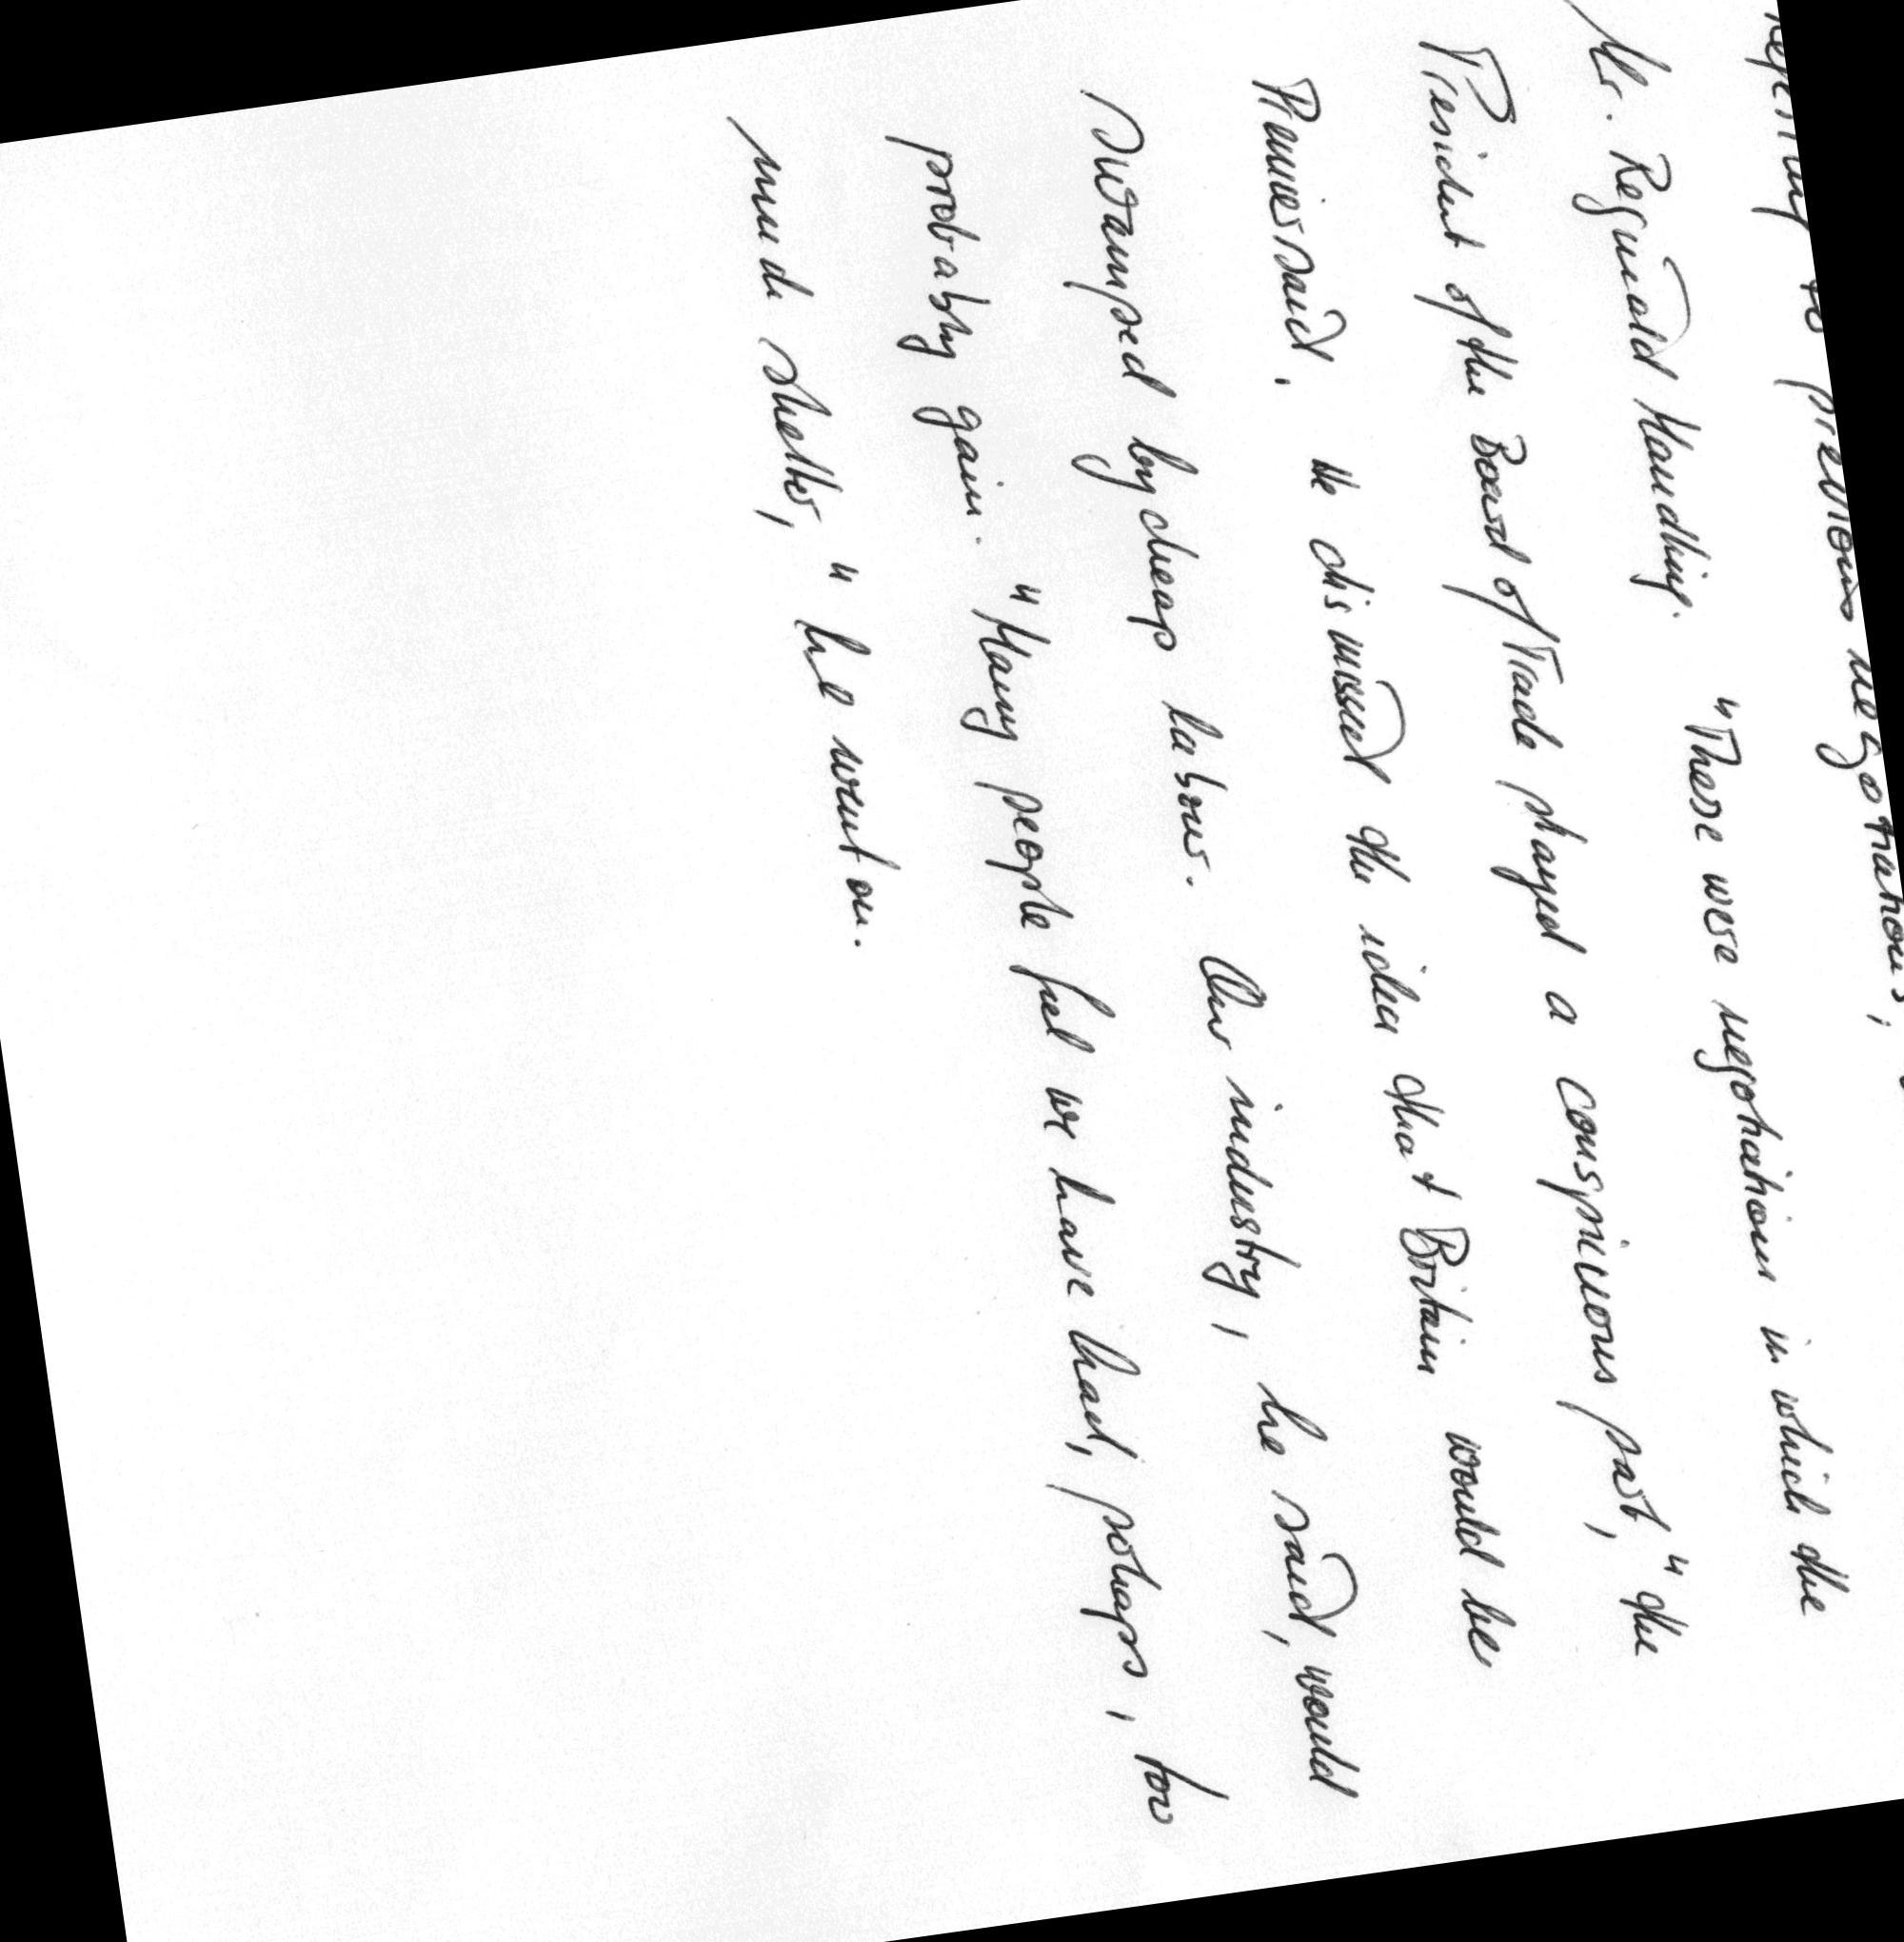 to previous negotiations,
Mr. Reginald Maudling. "These were negotiations in which the
President of the Board of Trade played a conspicuous part," the
Premier said. He dismissed the idea that Britain would be
swamped by cheap labour. Our industry, he said, would
probably gain. "Many people feel we have had, perhaps, too
much shelter," he went on.